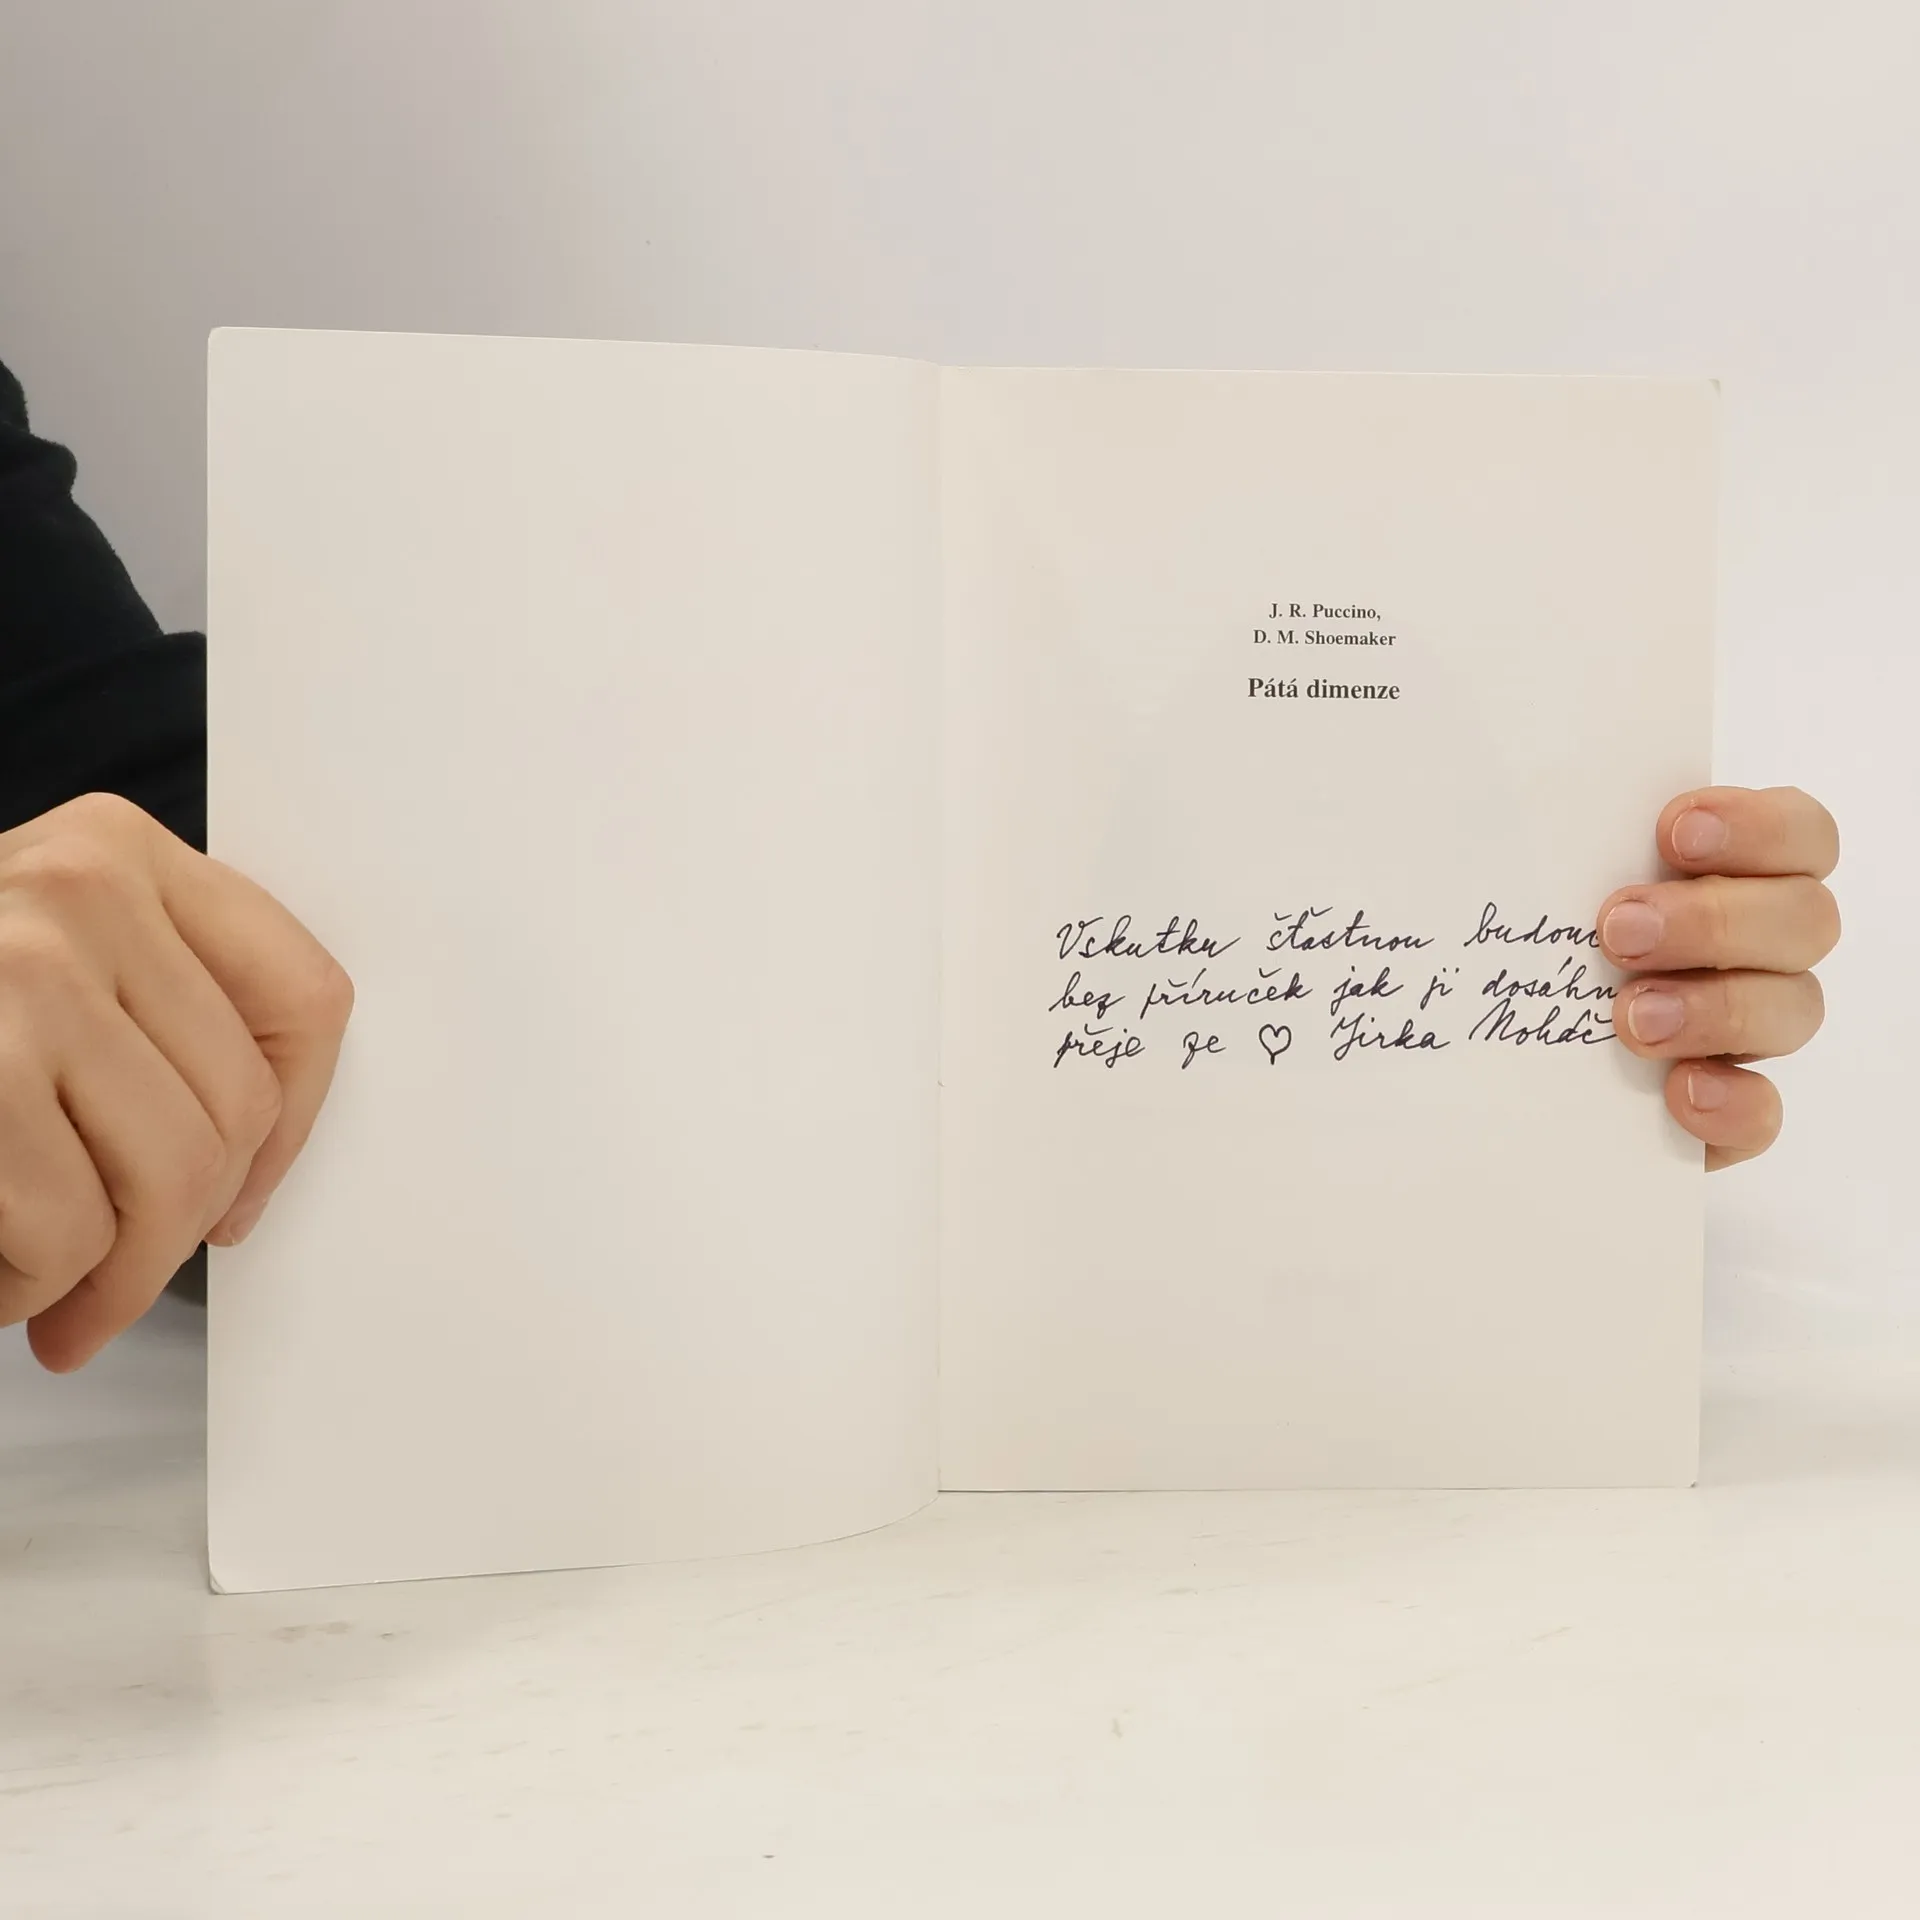 J. R. Puccino,
D. M. Shoemaker
Pátá dimenze
Vskutku šťastnou
bez příruček jak ji
přeje ze ♡ Jirka